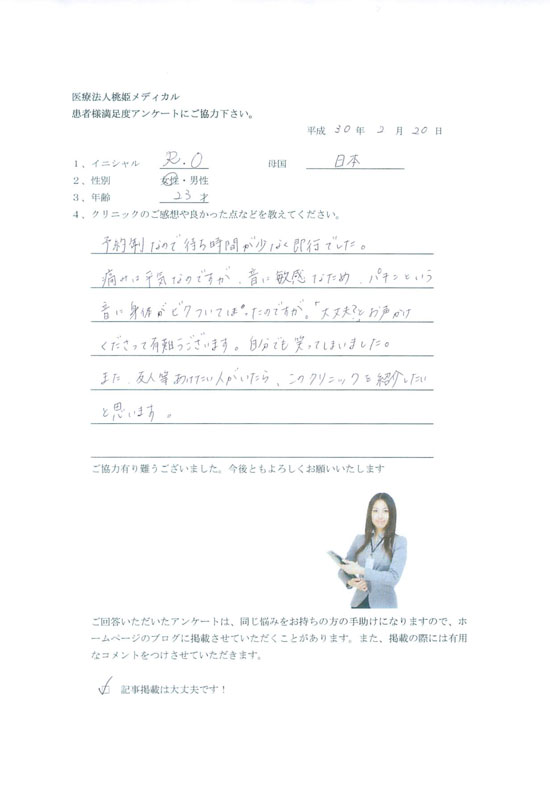 医療法人桃姫メディカル
患者様満足度アンケートにご協力下さい。
平成 30 年 2 月 20 日
1、イニシャル R.O 母国 日本
2、性別 女性・男性
3、年齢 23才
4、クリニックのご感想や良かった点などを教えてください。
予約制なので待ち時間が少なく即行でした。
痛みは平気なのですが、音に敏感なため、パチンという
音に身体がビクついてしまったのですが。"大丈夫?"とお声がけ
くださって有難うございます。自分でも笑ってしまいました。
また、友人等あけたい人がいたら、このクリニックを紹介したい
と思います。
ご協力有り難うございました。今後ともよろしくお願いいたします
ご回答いただいたアンケートは、同じ悩みをお持ちの方の手助けになりますので、ホ
ームページのブログに掲載させていただくことがあります。また、掲載の際には有用
なコメントをつけさせていただきます。
記事掲載は大丈夫です！